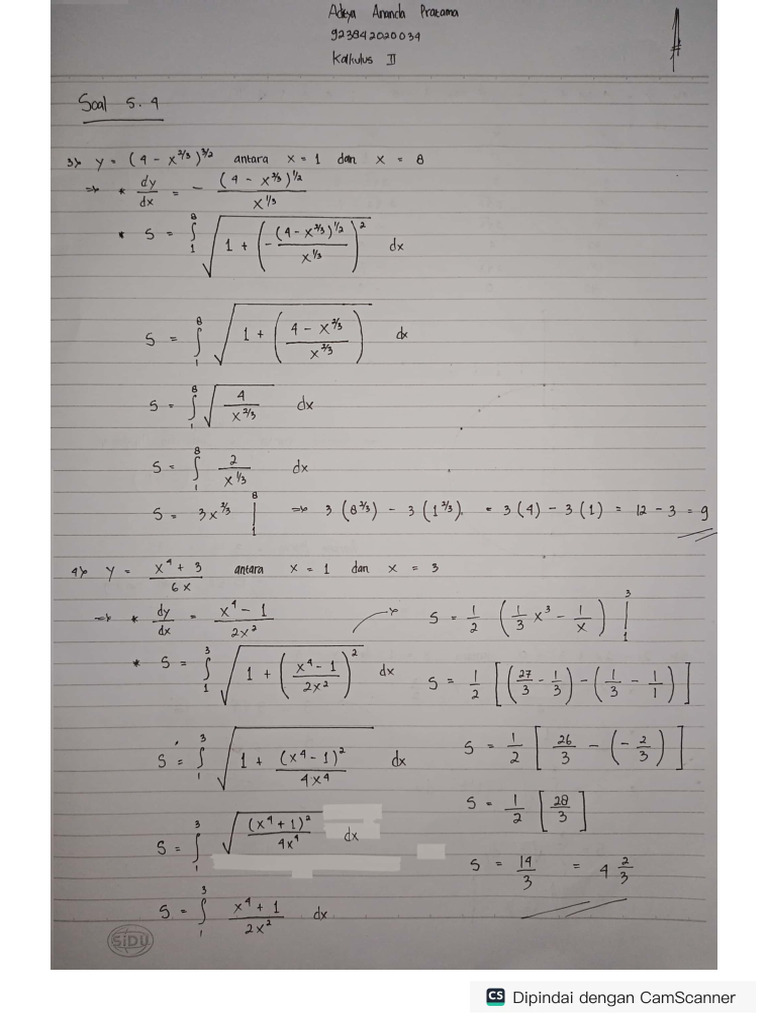 Aditya Ananda Pratama
923842020034
Kalkulus II
Soal 5.4
3) y = (4 - x^(2/3))^(3/2) antara x = 1 dan x = 8
⇒ * dy/dx = - (4 - x^(2/3))^(1/2) / x^(1/3)
* S = ∫₁⁸ √(1 + (-(4 - x^(2/3))^(1/2) / x^(1/3))²) dx
S = ∫₁⁸ √(1 + ((4 - x^(2/3)) / x^(2/3))) dx
S = ∫₁⁸ √(4 / x^(2/3)) dx
S = ∫₁⁸ 2 / x^(1/3) dx
S = 3x^(2/3) |₁⁸ ⇒ 3 (8^(2/3)) - 3 (1^(2/3)) = 3(4) - 3(1) = 12 - 3 = 9
4) y = (x⁴ + 3) / 6x antara x = 1 dan x = 3
⇒ * dy/dx = (x⁴ - 1) / 2x²
* S = ∫₁³ √(1 + ((x⁴ - 1) / 2x²)²) dx
S = ∫₁³ √(1 + (x⁴ - 1)² / 4x⁴) dx
S = ∫₁³ √((x⁴ + 1)² / 4x⁴) dx
S = ∫₁³ (x⁴ + 1) / 2x² dx
S = 1/2 (1/3 x³ - 1/x) |₁³
S = 1/2 [(27/3 - 1/3) - (1/3 - 1/1)]
S = 1/2 [26/3 - (-2/3)]
S = 1/2 [28/3]
S = 14/3 = 4 2/3
SiDU
CS Dipindai dengan CamScanner